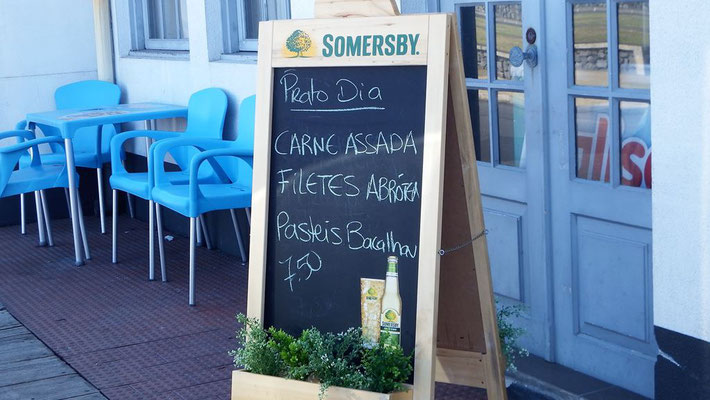 SOMERSBY
Prato Dia
CARNE ASSADA
FILETES ABRÓTEA
Pasteis Bacalhau
7,50
SOMERSBY